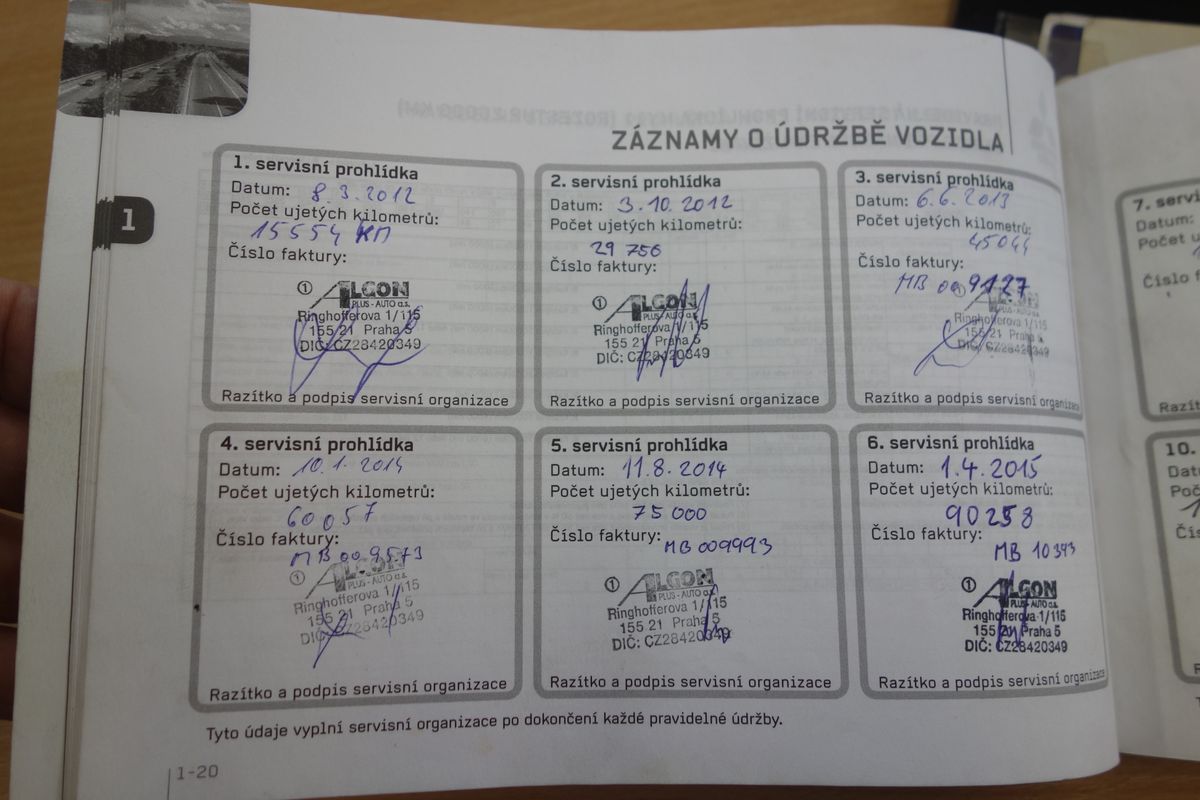 ZÁZNAMY O ÚDRŽBĚ VOZIDLA
1
1. servisní prohlídka
Datum: 8.3.2012
Počet ujetých kilometrů:
15554 KM
Číslo faktury:
1 ALGON
PLUS - AUTO a.s.
Ringhofferova 1/115
155 21 Praha 5
DIČ: CZ28420349
Razítko a podpis servisní organizace
2. servisní prohlídka
Datum: 3.10.2012
Počet ujetých kilometrů:
29 756
Číslo faktury:
1 ALGON
PLUS - AUTO a.s.
Ringhofferova 1/115
155 21 Praha 5
DIČ: CZ28420349
Razítko a podpis servisní organizace
3. servisní prohlídka
Datum: 6.6.2013
Počet ujetých kilometrů:
45044
Číslo faktury:
MB 009127
1 ALGON
PLUS - AUTO a.s.
Ringhofferova 1/115
155 21 Praha 5
DIČ: CZ28420349
Razítko a podpis servisní organizace
4. servisní prohlídka
Datum: 10.1.2014
Počet ujetých kilometrů:
60057
Číslo faktury:
MB 009573
1 ALGON
PLUS - AUTO a.s.
Ringhofferova 1/115
155 21 Praha 5
DIČ: CZ28420349
Razítko a podpis servisní organizace
5. servisní prohlídka
Datum: 11.8.2014
Počet ujetých kilometrů:
75000
Číslo faktury:
MB 009993
1 ALGON
PLUS - AUTO a.s.
Ringhofferova 1/115
155 21 Praha 5
DIČ: CZ28420349
Razítko a podpis servisní organizace
6. servisní prohlídka
Datum: 1.4.2015
Počet ujetých kilometrů:
90258
Číslo faktury:
MB 10393
1 ALGON
PLUS - AUTO a.s.
Ringhofferova 1/115
155 21 Praha 5
DIČ: CZ28420349
Razítko a podpis servisní organizace
Tyto údaje vyplní servisní organizace po dokončení každé pravidelné údržby.
1-20
7. servi
Datum:
Počet u
Číslo f
Razít
10.
Dat
Poč
Čís